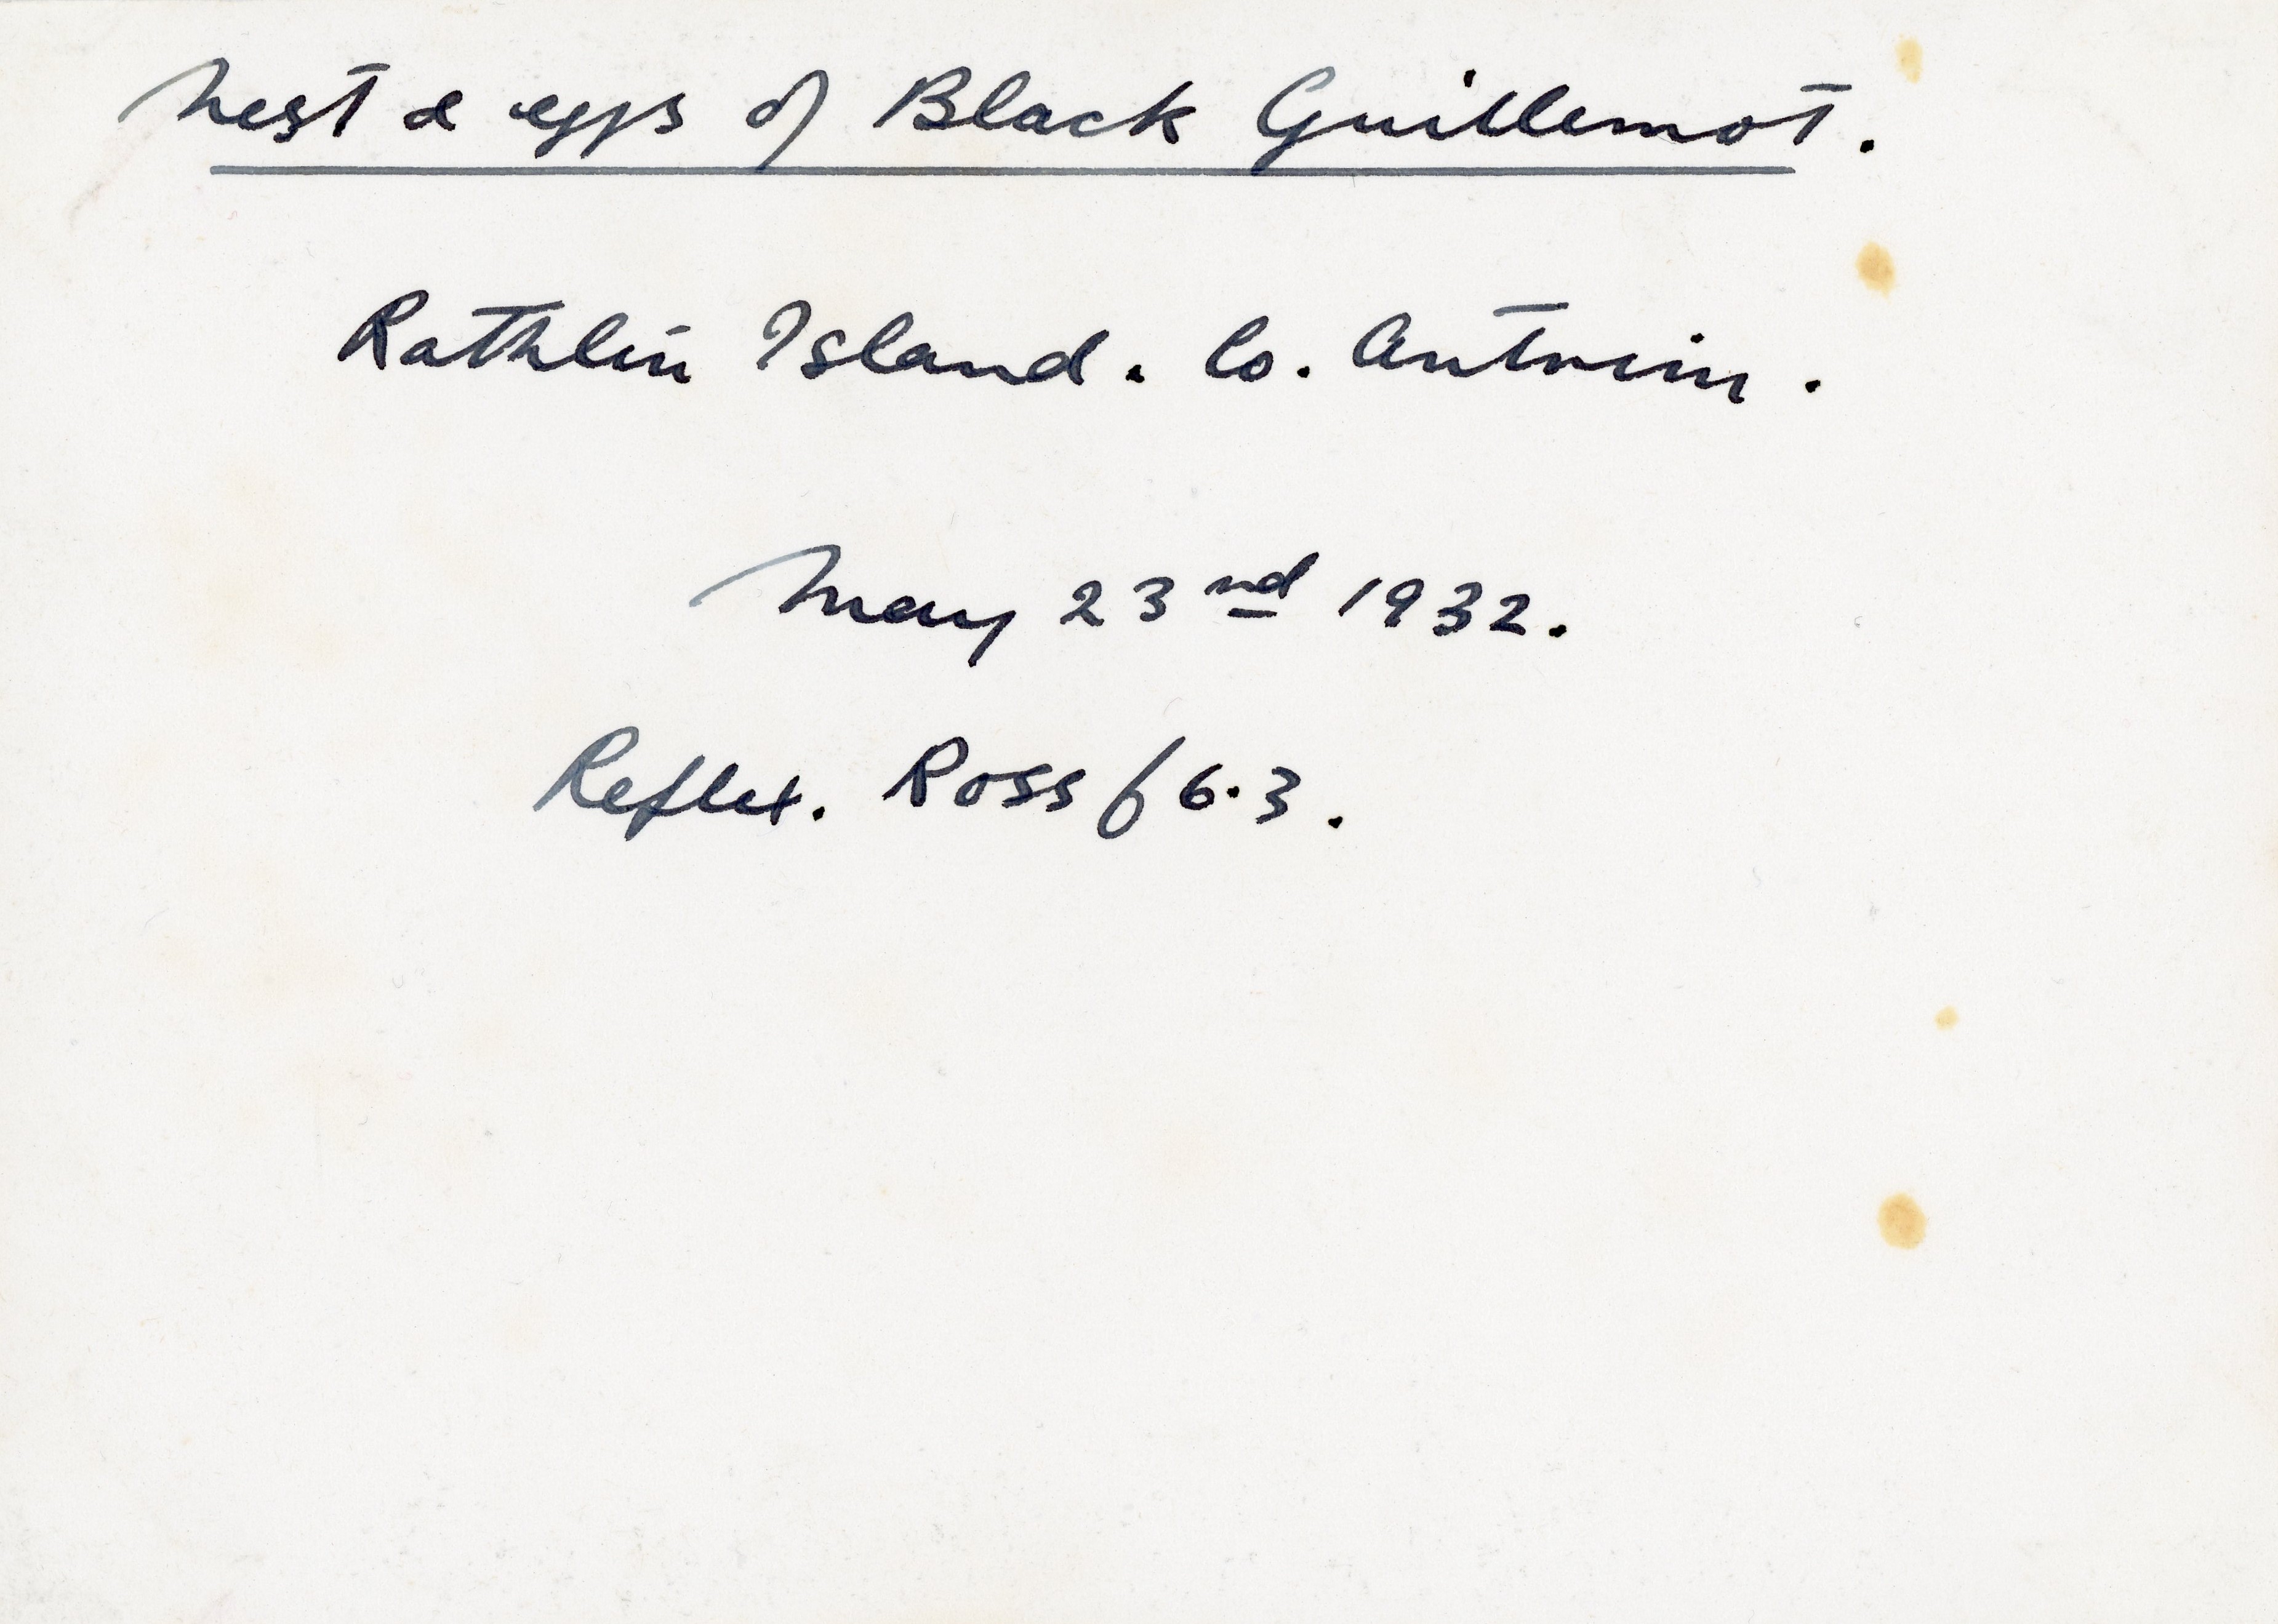 Nest & eggs of Black Guillemot.
Rathlin Island. Co. Antrim.
May 23nd 1932.
Reflex. Ross f 6.3.